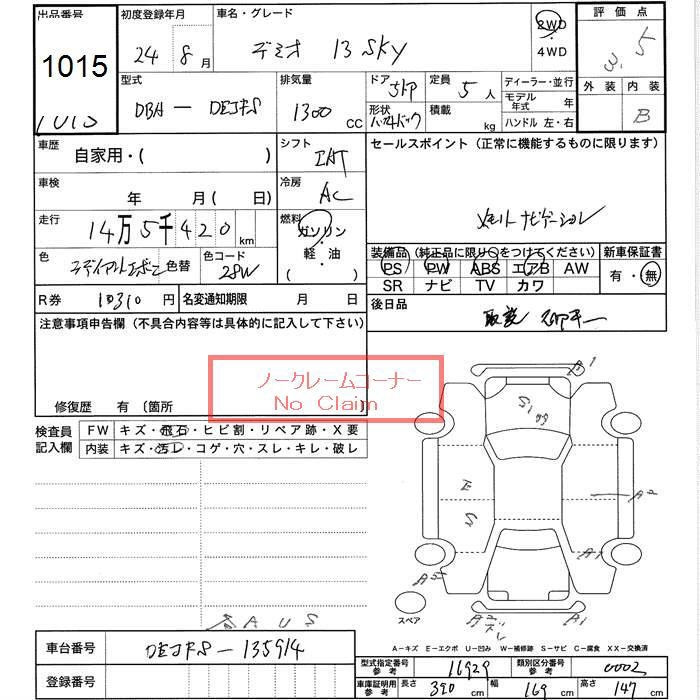 出品番号 初度登録年月 車名・グレード 評価点
1015 24 8月 デミオ 13 SKY 2WD 3.5
4WD
型式 排気量 ドア 5ドア 定員 5人 ディーラー・並行 外装 内装
DBA — DEJFS 1300 CC 形状 積載 kg モデル年式 年 B
ハンドル 左・右
車歴 自家用・( ) シフト セールスポイント (正常に機能するものに限ります)
車検 年 月(日) 冷房 AC
走行 14万5千420km 燃料 ガソリン・軽・油( )
色 色替 色コード 28W
装備品 (純正品に限り○をつけてください) 新車保証書
PS PW ABS エアB AW 有・無
SR ナビ TV カワ
R券 10310円 名変通知期限 月 日 後日品
注意事項申告欄 (不具合内容等は具体的に記入して下さい)
ノークレームコーナー
No Claim
修復歴 有 〔箇所
検査員 FW キズ・飛石・ヒビ割・リペア跡・X要
記入欄 内装 キズ・汚レ・コゲ・穴・スレ・キレ・破レ
A1
E
S
A2
A1
スペア
A1
A A U S
A-キズ E-エクボ U-凹み W-補修跡 S-サビ C-腐食 XX-交換済
車台番号 DEJFS-135914
登録番号
型式指定番号 参考 16929 類別区分番号 参考 0002
車庫証明用 参考 長さ 390cm 幅 169cm 高さ 147cm